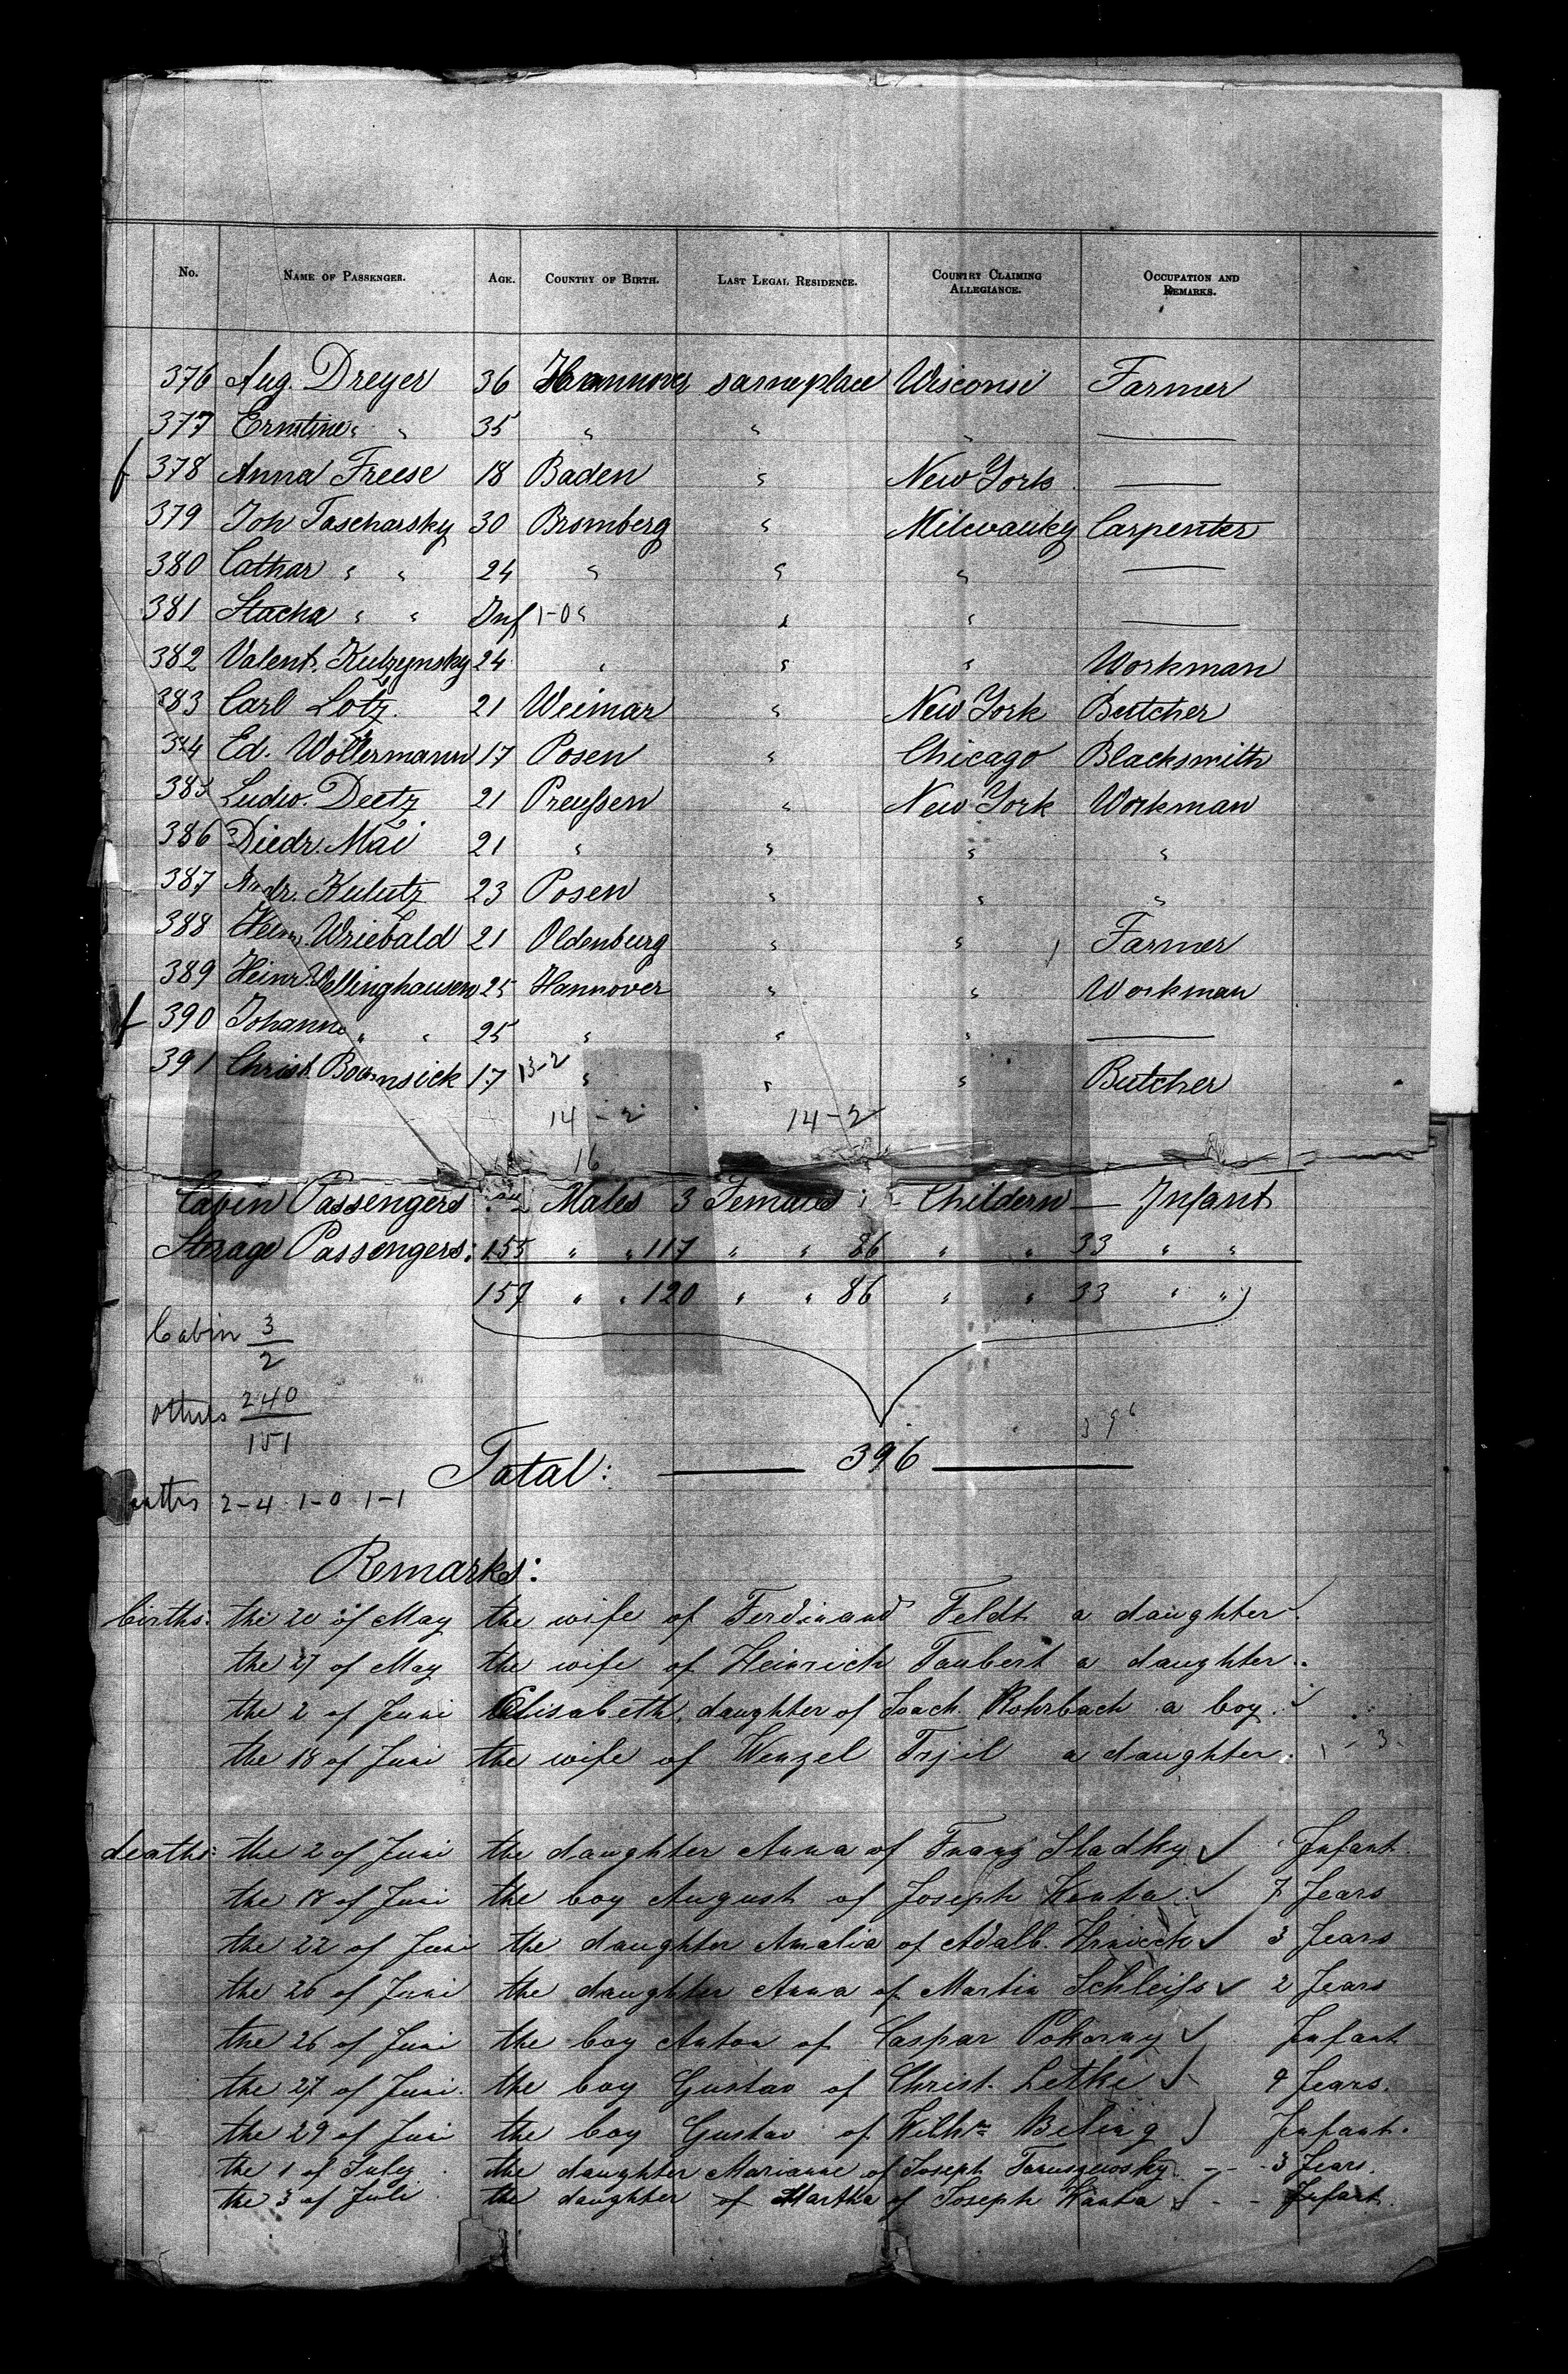 No. NAME OF PASSENGER. AGE. COUNTRY OF BIRTH. LAST LEGAL RESIDENCE. COUNTRY CLAIMING ALLEGIANCE. OCCUPATION AND REMARKS.
376 Aug. Dreyer 36 Hannover sameplace Wisconsi Farmer
377 Ernstine " " 35 " " " —
f 378 Anna Freese 18 Baden " New York —
379 Joh Tascharsky 30 Bromberg " Milwauky Carpenter
380 Cathar " " 24 " " " —
381 Stacha " " Inf 1-0 " " " —
382 Valent. Kulzynsky 24 " " " Workman
383 Carl Lotz. 21 Weimar " New York Butcher
384 Ed. Woltermann 17 Posen " Chicago Blacksmith
385 Ludw. Deetz 21 Preußen " New York Workman
386 Diedr. Mai 21 " " " "
387 Andr. Kulutz 23 Posen " " "
388 Heinr. Wriebald 21 Oldenburg " " Farmer
389 Heinr. Wellinghausen 25 Hannover " " Workman
f 390 Johanne " " 25 " " " —
391 Christ. 17 13-2 " " " Butcher
14 - 2 14 - 2
16
Cabin Passengers: 2 Males 3 Females: - Childern — Infant
Sterage Passengers: 155 " " 117 " " 86 " " 33 " "
157 " " 120 " " 86 " " 33 " "
Cabin 3
2
others 240
151
396
Total: — 396 —
2-4 1-0 1-1
Remarks:
births: the 20 of May the wife of Ferdinand Feldt a daughter.
the 27 of May the wife of Heinrich Taubert a daughter.
the 2 of Juni Elisabeth, daughter of Joach. Rohrbach a boy.
the 18 of Juni the wife of Wenzel Trjil a daughter. 1-3
deaths: the 2 of Juni the daughter Anna of Franz Sladky Infant.
the 18 of Juni the boy August of Joseph Kanta 7 Jears
the 22 of Juni the daughter Amalia of Adalb. 3 Jears
the 26 of Juni the daughter Anna of Martin Schleißs 2 Jears
the 26 of Juni the boy Anton of Caspar Pokorny Infant
the 27 of Juni. the boy Gustav of Christ. Letke 9 Jears.
the 29 of Juni the boy Gustav of Wilhm Beling Infant.
the 1 of July the daughter Marianne of Joseph - - 3 Jears.
the 3 of Juli the daughter of Martha of Joseph Kanta - - Infant.